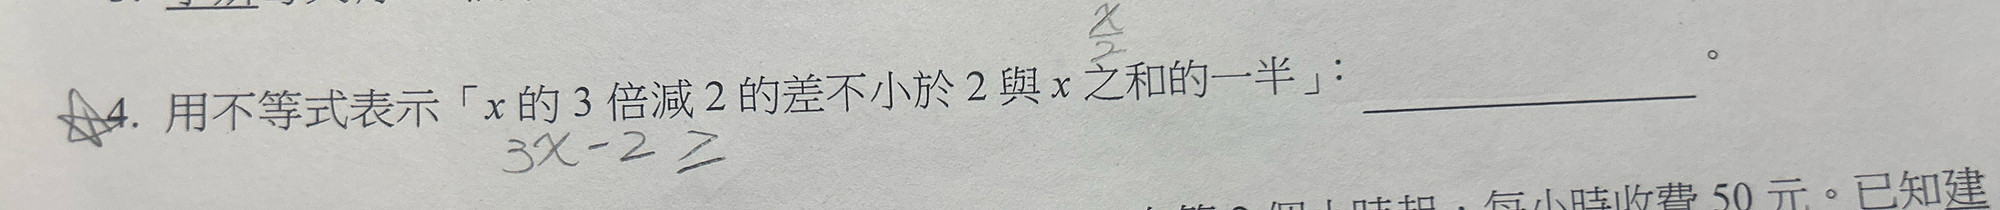 x
2
4. 用不等式表示「x 的 3 倍減 2 的差不小於 2 與 x 之和的一半」: ________。
3x-2 ≥
每小時收費 50 元。已知建